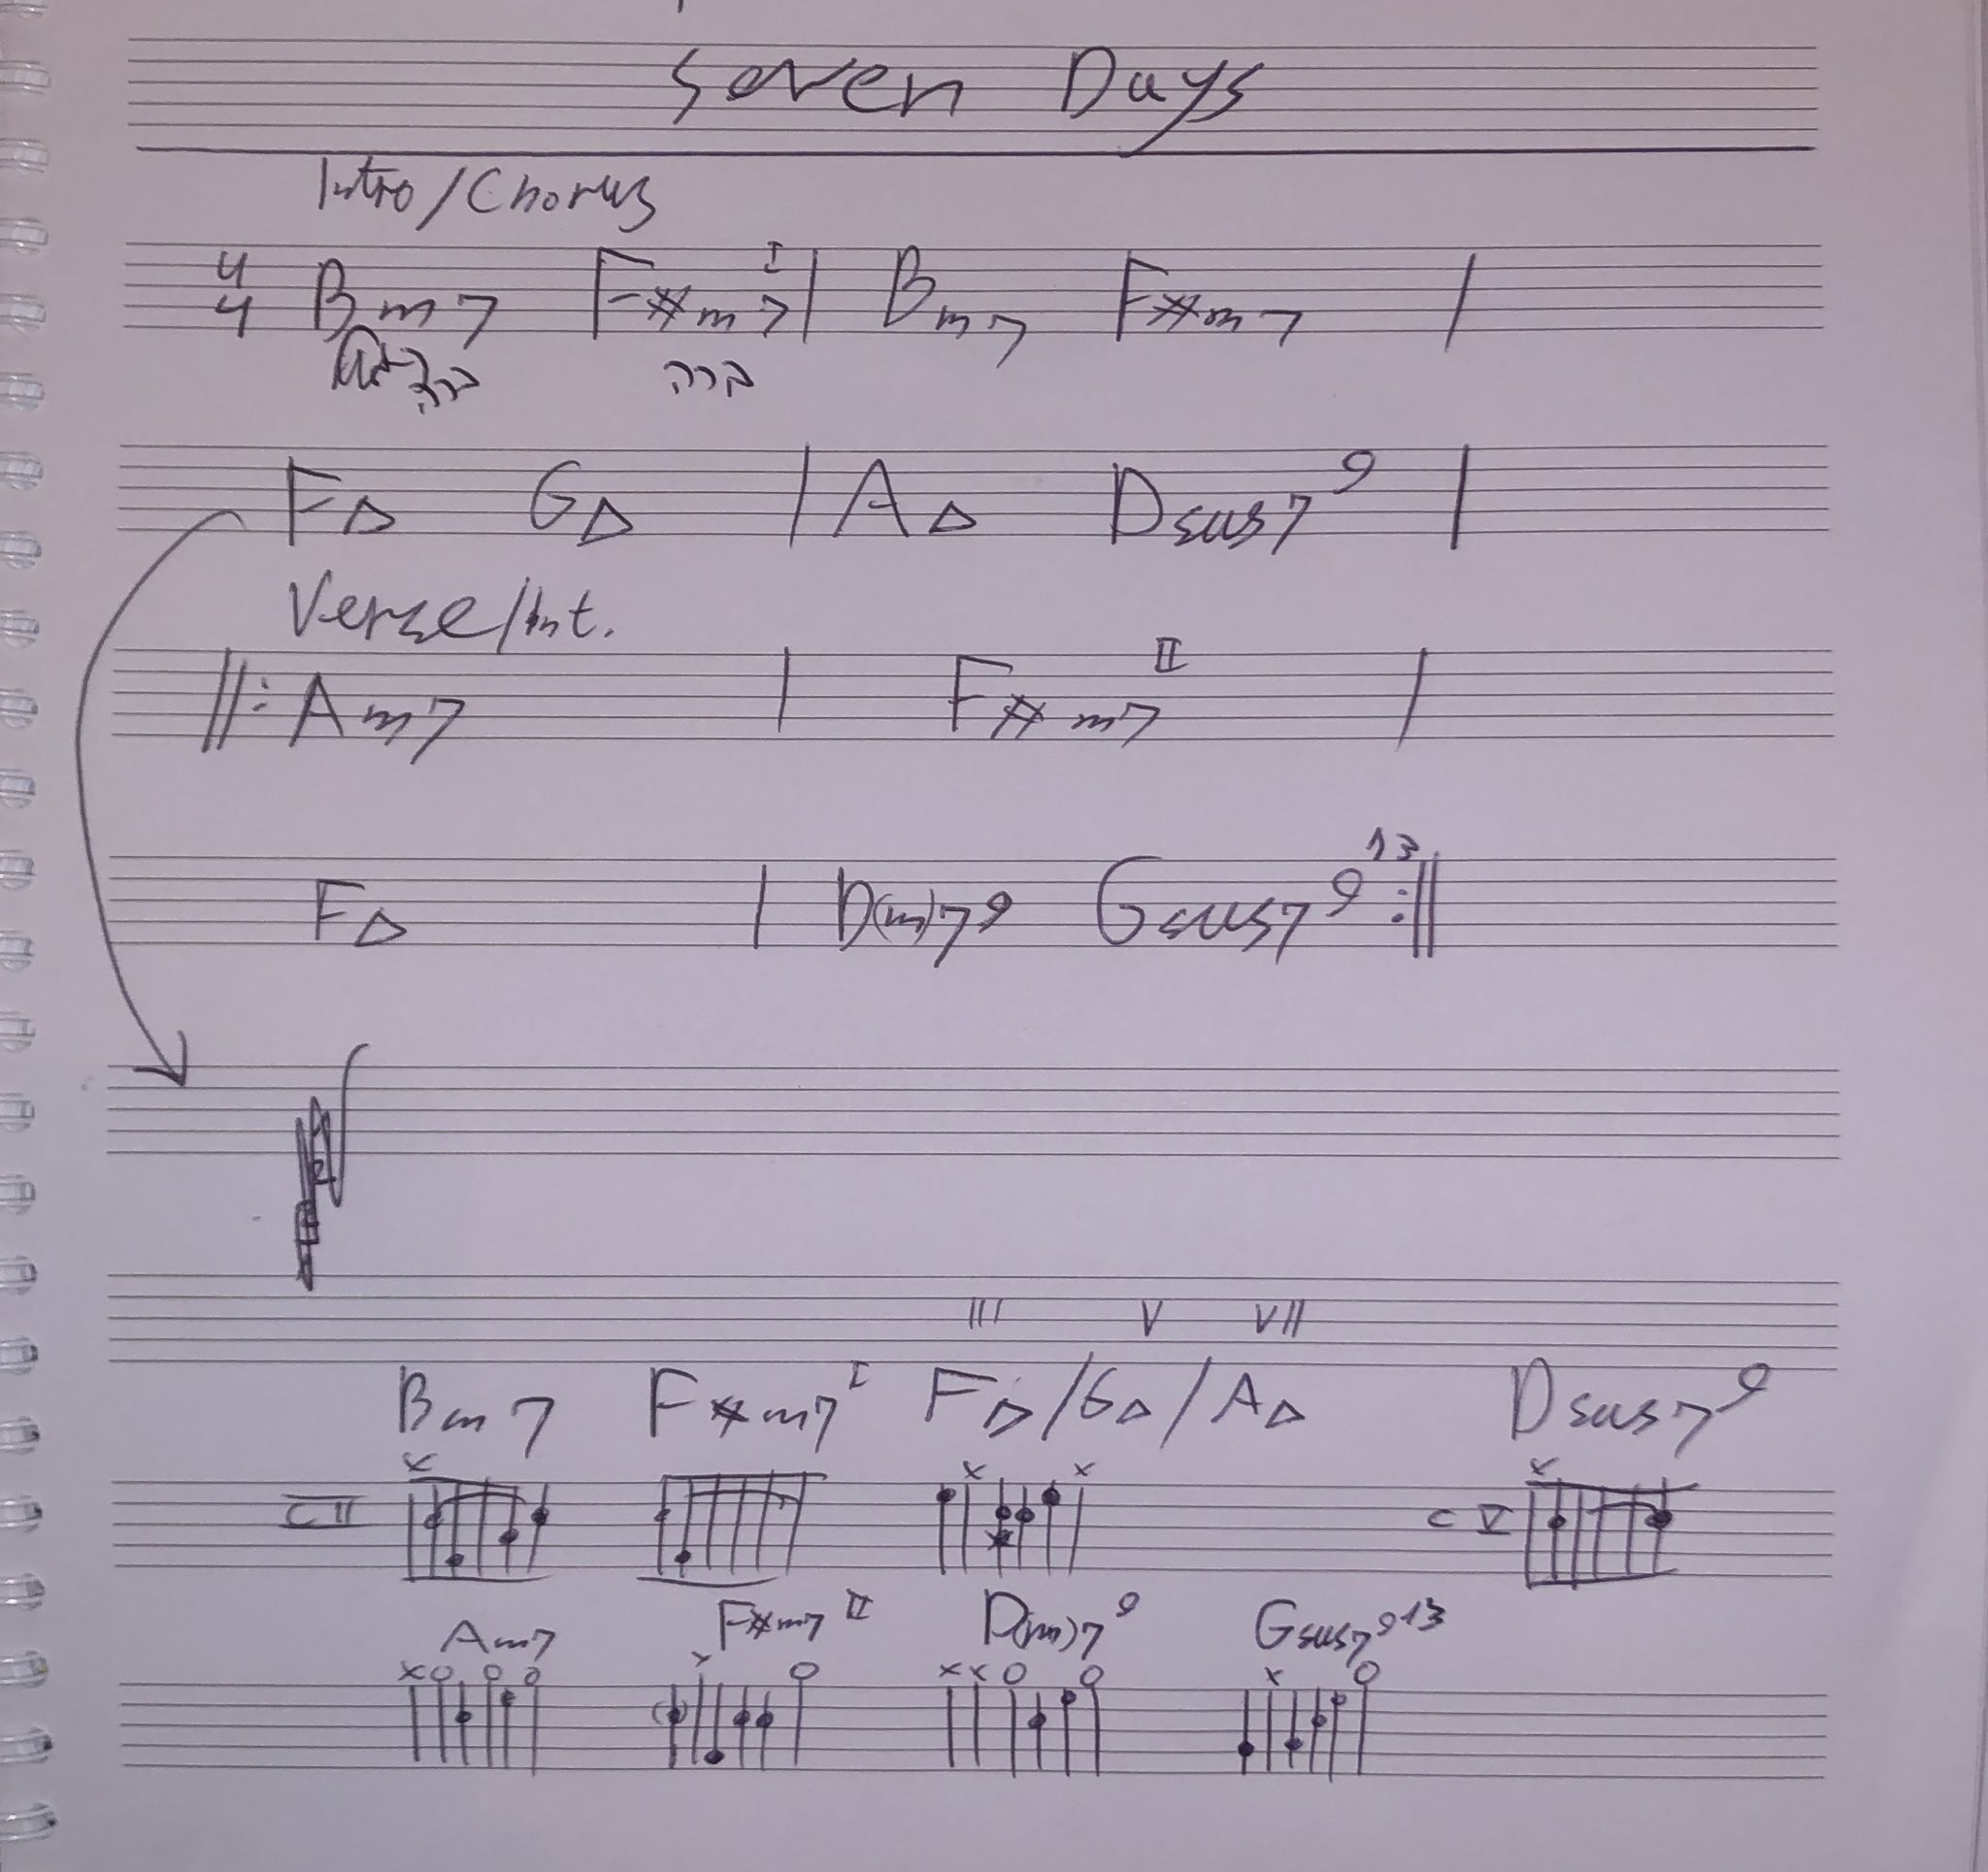 Seven Days
Intro/Chorus
4/4 Bm7 F#m7 I | Bm7 F#m7 |
ברה ברה
F△ G△ | A△ Dsus7 9 |
Verse/Int.
||: Am7 | F#m7 II |
F△ | D(m)7 9 Gsus7 9 13 :||
III V VII
Bm7 F#m7 I F△/G△/A△ Dsus7 9
x x x x
C II C V
Am7 F#m7 II D(m)7 9 Gsus7 9 13
x o o o x o x x o o x o